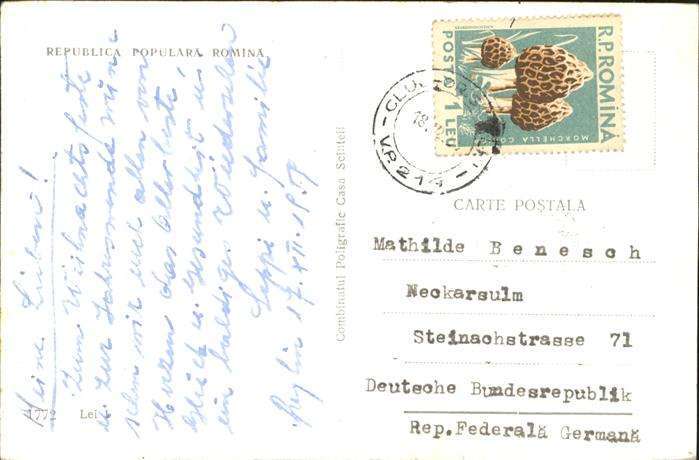 REPUBLICA POPULARĂ ROMÎNĂ
Meine Lieben!
Zum Weihnachtsfeste
u. zur Jahreswende
wir euch allen von
Herzen das Allerbeste,
Glück u. Gesundheit u.
ein baldiges Wiedersehen
Seppi u. Familie
17.XII.
1772 Lei
Combinatul Poligrafic Casa Scînteii
R.P.ROMINA
POSTA
1 LEU
MORCHELLA
CLUJ
18.
VR 214
CARTE POȘTALA
Mathilde Benesch
Neckarsulm
Steinachstrasse 71
Deutsche Bundesrepublik
Rep.Federală Germană